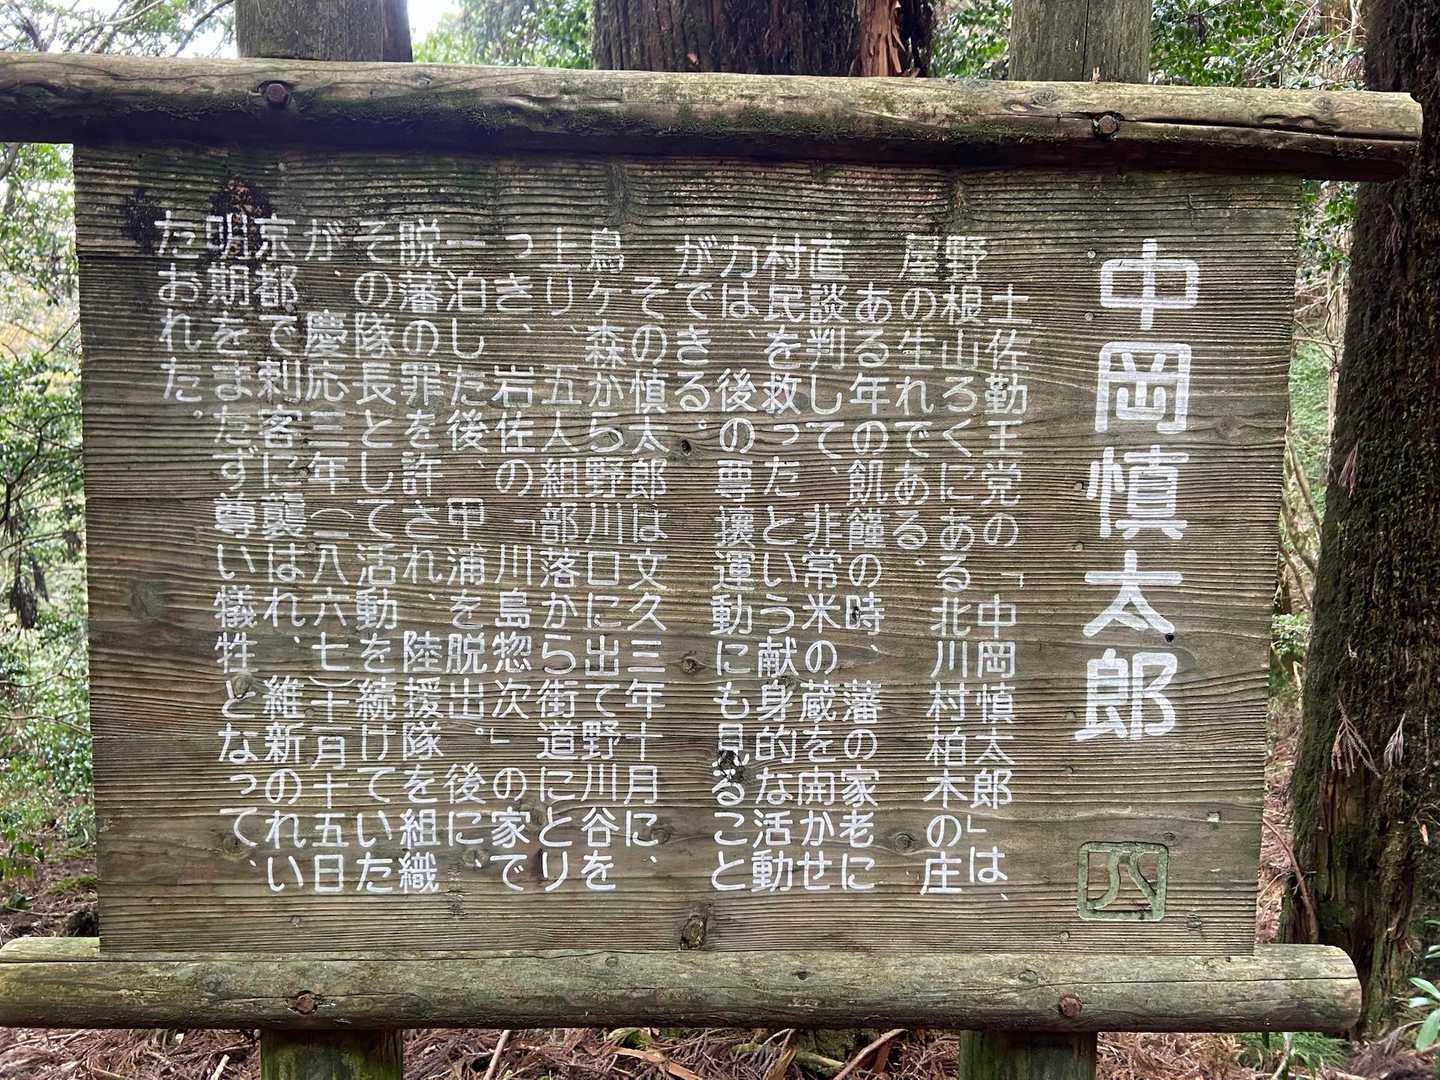 中岡慎太郎
土佐勤王党の「中岡慎太郎」は、
野根山ろくにある北川村柏木の庄
屋の生れである。
ある年の飢饉の時、藩の家老に
直談判して、非常米の蔵を開かせ
村民を救ったという献身的な活動
力は、後の尊攘運動にも見ること
ができる。
その慎太郎は文久三年十月に、
鳥ヶ森から野川口に出て野川谷を
上り、五人組部落から街道にとり
つき、岩佐の「川島惣次」の家で
一泊した後、甲浦を脱出。後に
脱藩の罪を許され、陸援隊を組織
その隊長として活動を続けていた
が、慶応三年(一八六七)十一月十五日
京都で刺客に襲はれ、維新のれい
明期をまたず尊い犠牲となって、
たおれた。
JS